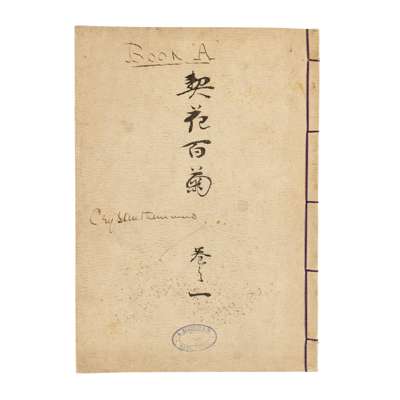 Book A
契花百菊
Crysanthemums
巻之一